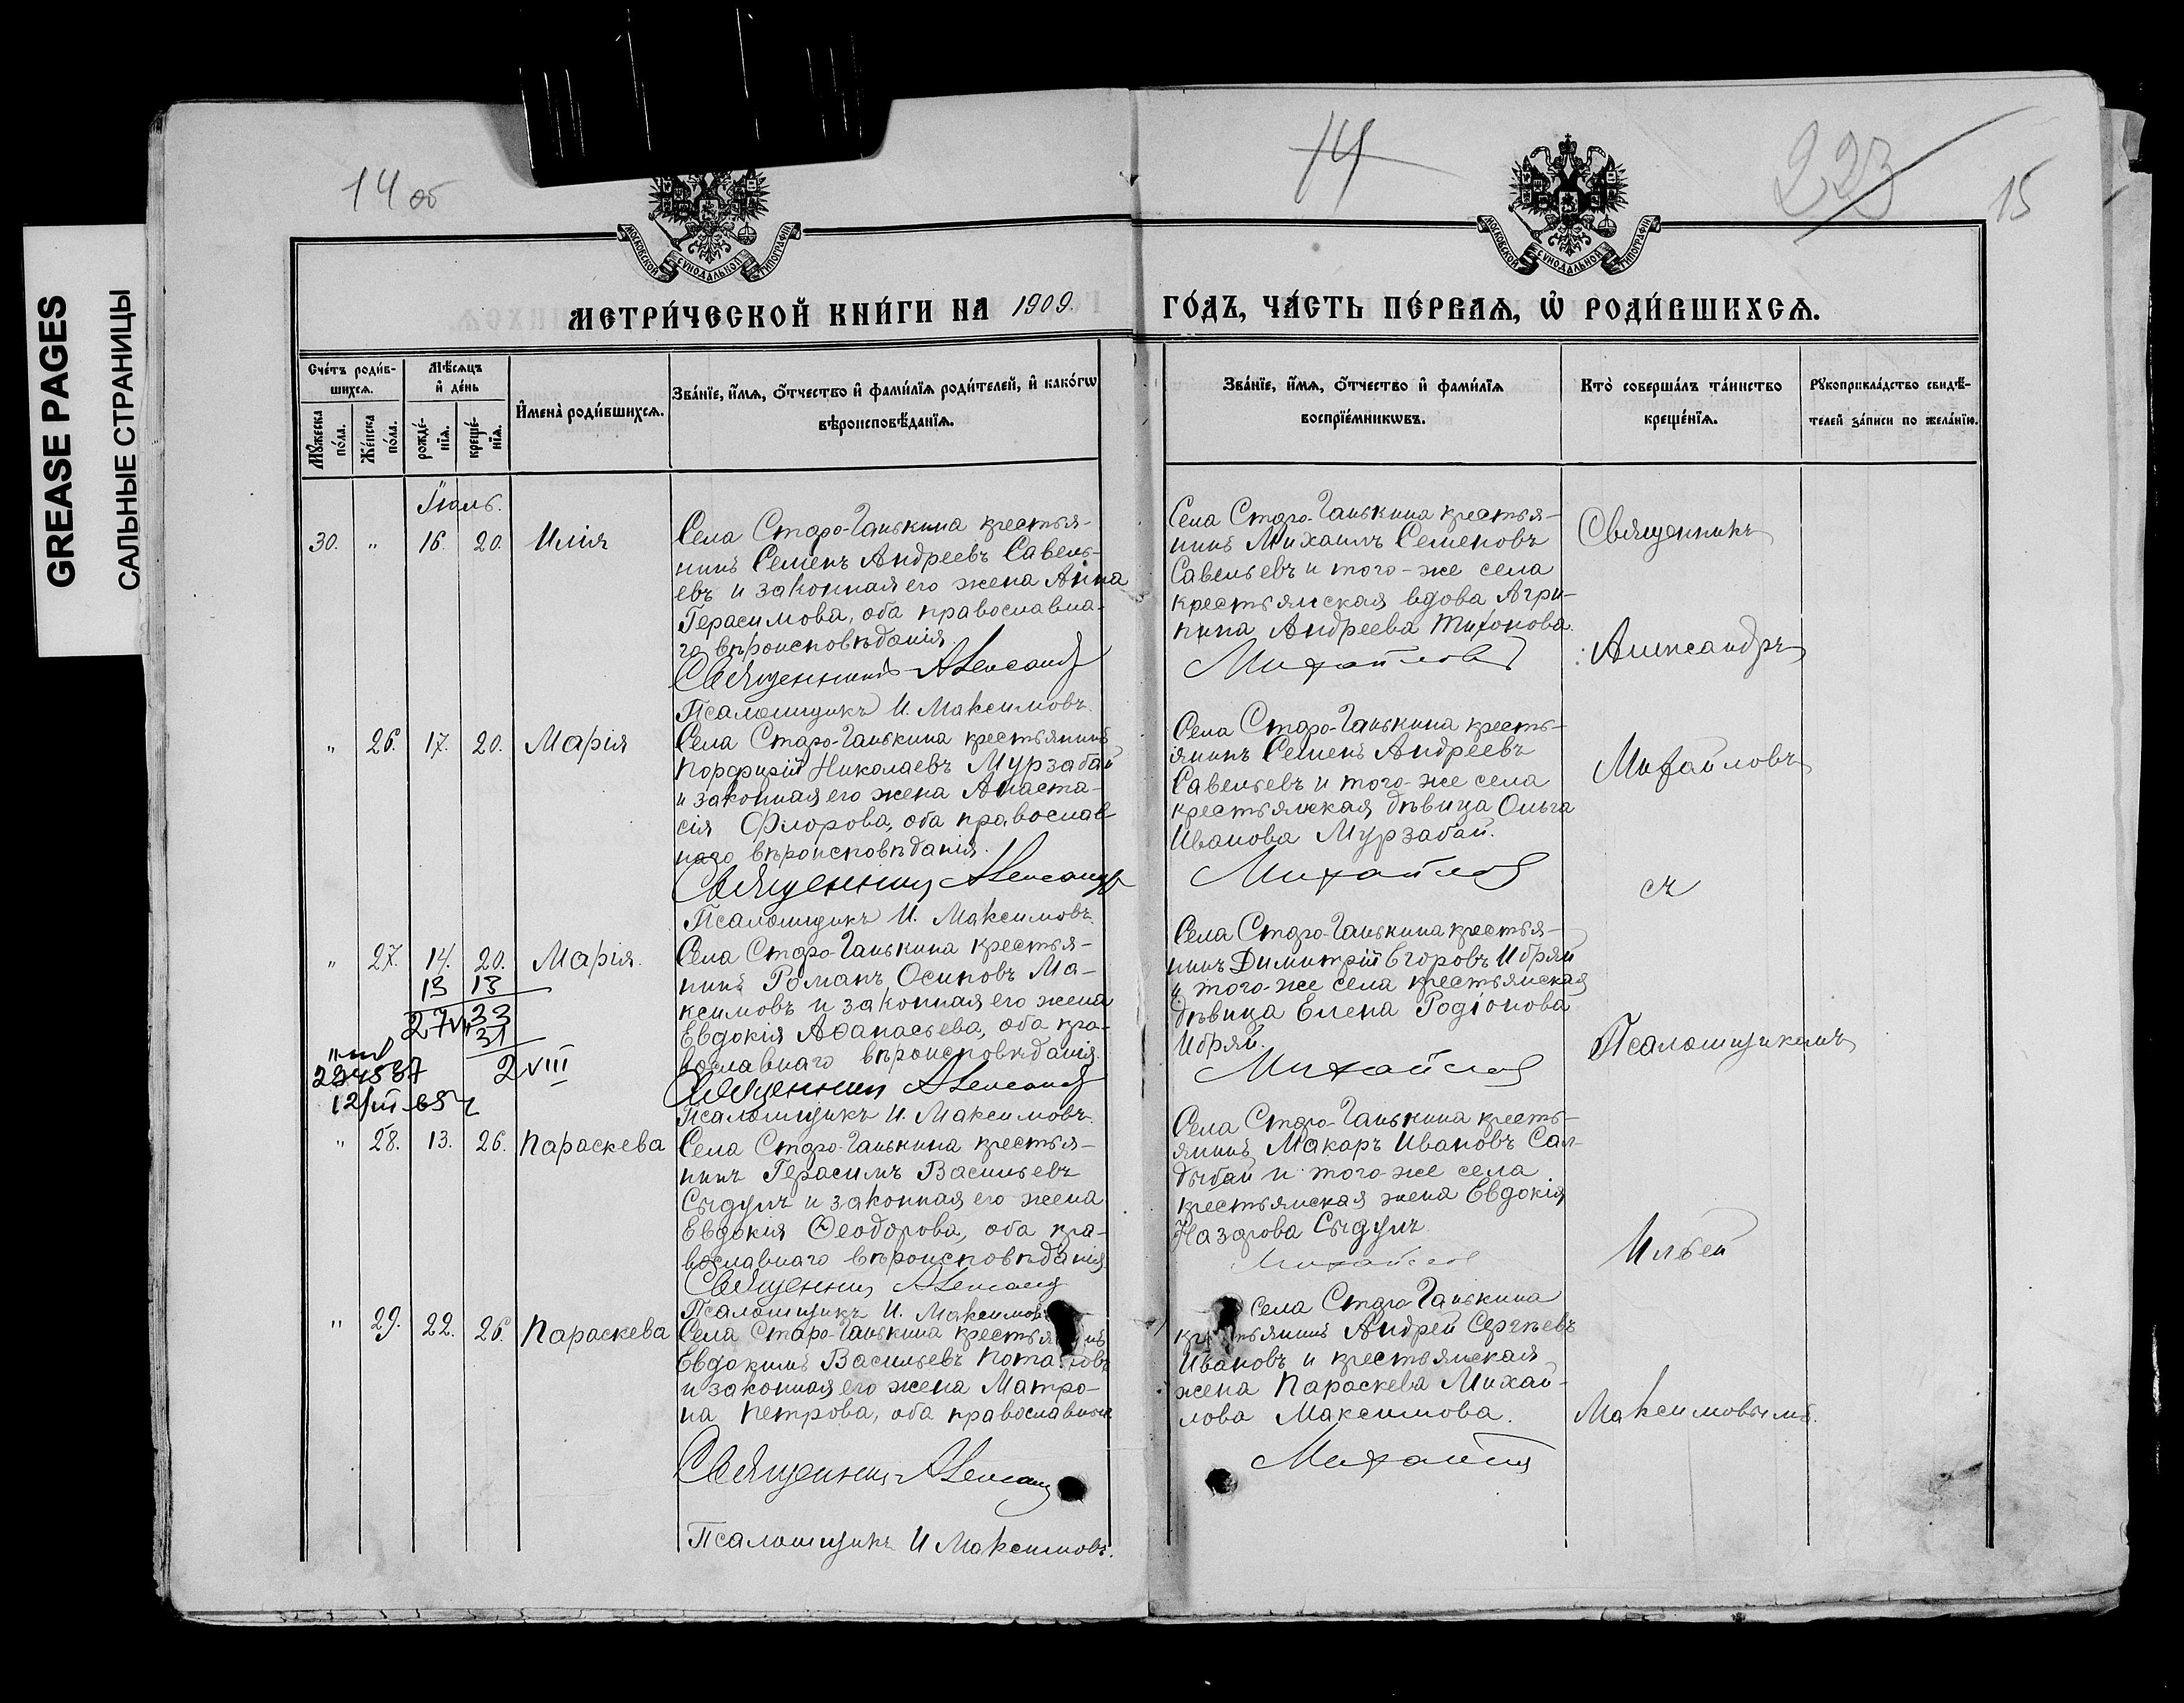 GREASE PAGES
САЛЬНЫЕ СТРАНИЦЫ
14 об
14
223
15
МОСКОВСКОЙ СѴНОДАЛЬНОЙ ТИПОГРАФІИ
МОСКОВСКОЙ СѴНОДАЛЬНОЙ ТИПОГРАФІИ
МЕТРИ́ЧЕСКОЙ КНИ́ГИ НА 1909.
ГО́ДЪ, ЧА́СТЬ ПЕ́РВАѦ, Ѽ РОДИ́ВШИХСѦ.
Сче́тъ роди́в-
шихсѧ.
Мꙋ́жеска по́ла.
Же́нска по́ла.
Мѣ́сѧцъ
и҆ де́нь
рожде́-
нїѧ.
креще́-
нїѧ.
И҆мена̀ роди́вшихсѧ.
Зва́нїе, и҆́мѧ, ѻ҆́тчество и҆ фами́лїѧ роди́телей, и҆ како́гѡ
вѣроисповѣ́данїѧ.
Зва́нїе, и҆́мѧ, ѻ҆́тчество и҆ фами́лїѧ
воспрїе́мникѡвъ.
Кто̀ соверша́лъ та́инство
креще́нїѧ.
Рꙋкоприкла́дство свидѣ́-
телей за́писи по жела́нїю.
Іюль.
30. " 16. 20. Илія
Села Старо-Ганькина крестья-
нинъ Семенъ Андреевъ Савель-
евъ и законная его жена Анна
Герасимова, оба православна-
го вѣроисповѣданія.
Священникъ Александр
Псаломщикъ И. Максимовъ.
Села Старо-Ганькина крестья-
нинъ Михаилъ Семеновъ
Савельевъ и того-же села
крестьянская вдова Агри-
пина Андреева Тихонова.
Михайлов
" 26. 17. 20. Марія
Села Старо-Ганькина крестьянинъ
Порфирій Николаевъ Мурзабай
и законная его жена Анаста-
сія Флорова, оба православ-
наго вѣроисповѣданія.
Священник Александр
Псаломщикъ И. Максимовъ.
Села Старо-Ганькина кресть-
янинъ Семенъ Андреевъ
Савельевъ и того-же села
крестьянская дѣвица Ольга
Иванова Мурзабай.
Михайлов
" 27. 14. 20. Марія.
13 13
27 VII 33
31
2 VIII
Села Старо-Ганькина крестья-
нинъ Романъ Осиповъ Ма-
ксимовъ и законная его жена
Евдокія Аѳанасьева, оба пра-
вославнаго вѣроисповѣданія.
Священник Александр
Псаломщикъ И. Максимовъ.
Села Старо-Ганькина крестья-
нинъ Димитрій Егоровъ Ибряй
и того-же села крестьянская
дѣвица Елена Родіонова
Ибряй.
Михайлов
" 28. 13. 26. Параскева
Села Старо-Ганькина крестья-
нинъ Герасимъ Васильевъ
Сыдулъ и законная его жена
Евдокія Ѳеодорова, оба пра-
вославнаго вѣроисповѣданія
Священник Александр
Псаломщикъ И. Максимов
Села Старо-Ганькина кресть-
янинъ Макаръ Ивановъ Сал-
дыбай и того-же села
крестьянская жена Евдокія
Назарова Сыдулъ.
Михайлов
" 29. 22. 26. Параскева
Села Старо-Ганькина
Евдокимъ Васильевъ
и законная его жена Матро-
на Петрова, оба православнаго
Священник Александр
Псаломщикъ И Максимовъ.
Села Старо-Ганькина
Андрей Сергѣевъ
Ивановъ и крестьянская
жена Параскева Михай-
лова Максимова.
Михайлов
Священникъ
Александръ
Михайловъ
съ
Псаломщикомъ
Ильей
Максимовымъ.